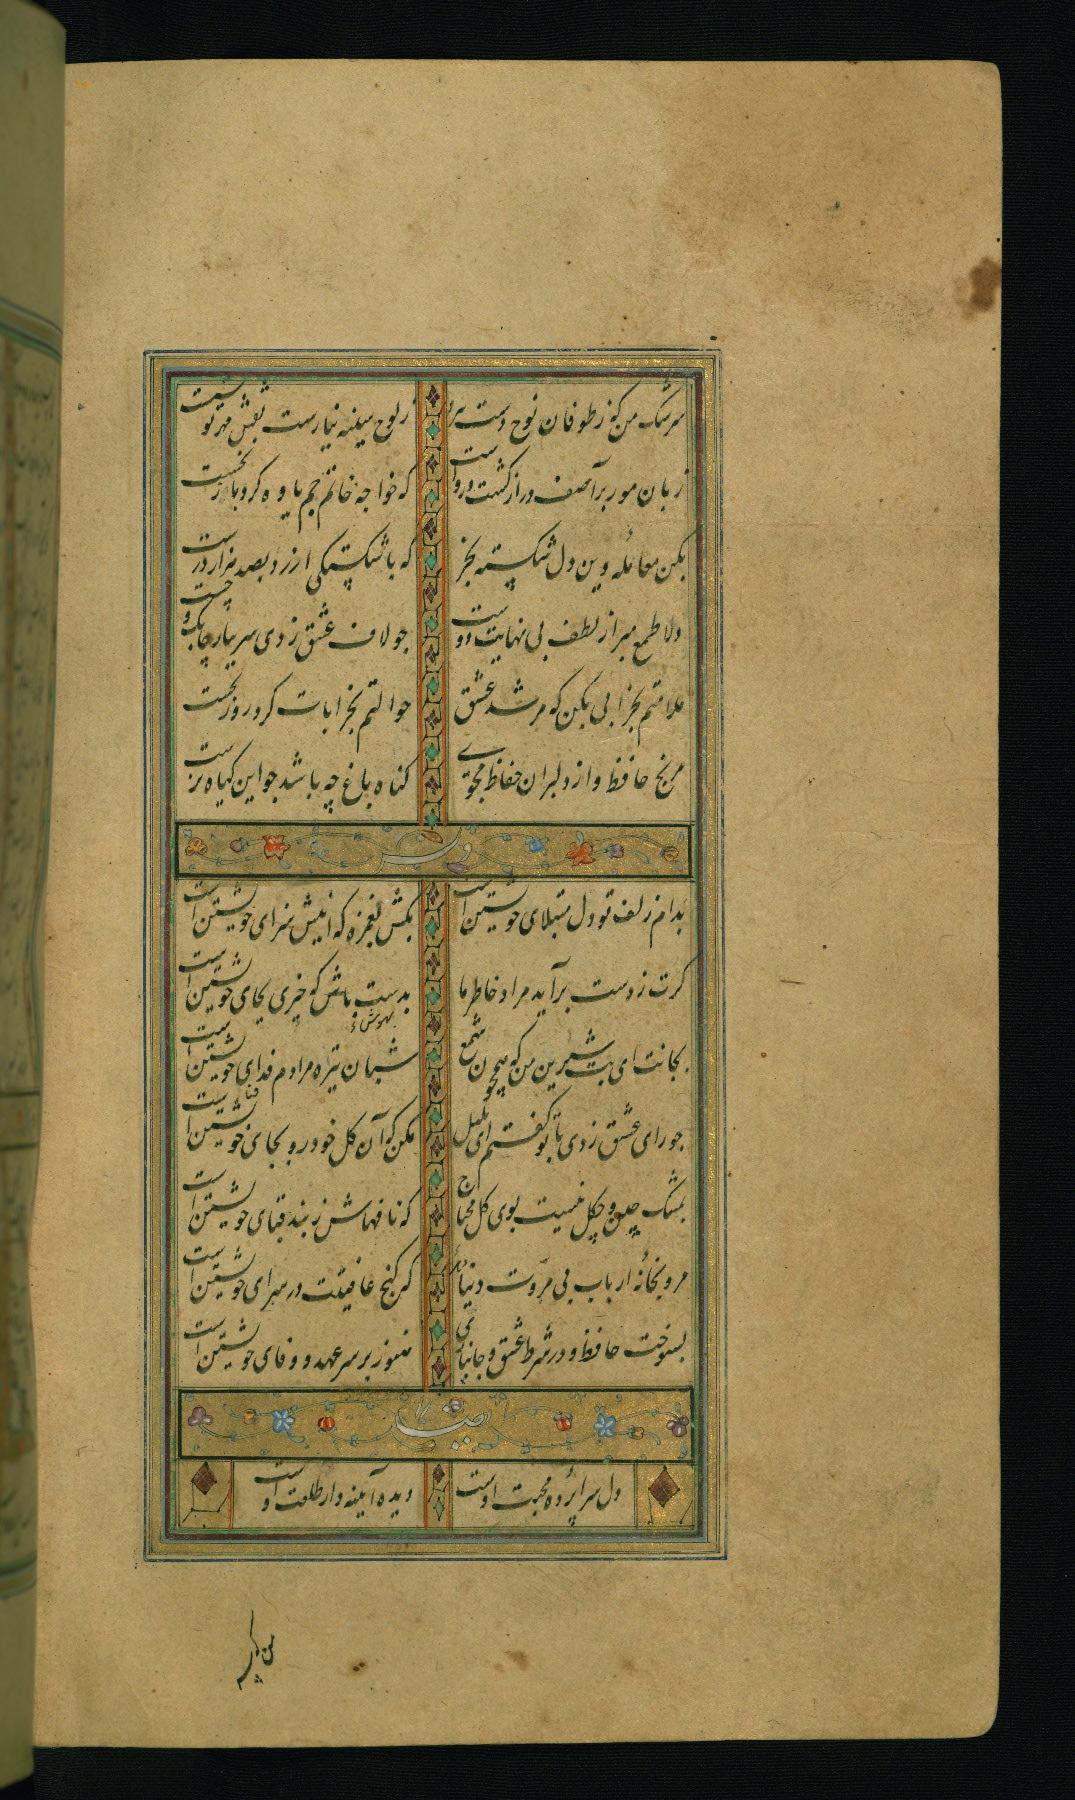 سرشک من که ز طوفان نوح دست برد
ز لوح سینه نیارست نقش مهر تو شست
زبان مور بر آصف دراز گشت و رواست
که خواجه خاتم جم یاوه کرد و باز نجست
بکن معامله وین دل شکسته بخر
که با شکستگی ارزد بصد هزار درست
دلا طمع مبر از لطف بی نهایت دوست
جو لاف عشق زدی سر بباز چابک و چست
ملامتم بخرابی مکن که مرشد عشق
حوالتم بخرابات کرد روز نخست
مرنج حافظ و از دلبران حفاظ مجوی
کناه باغ چه باشد جو این کیاه نرست
بدام زلف تو دل مبتلای خویشتن است
بکش بغمزه که اینش سزای خویشتن است
کرت ز دست برآید مراد خاطر ما
بدست باش که خیری بجای خویشتن است
بجانت ای بت شیرین من که همچون شمع
شبان تیره مرادم فدای خویشتن است
جو رای عشق زدی با تو کفتم ای بلبل
مکن که آن کل خودرو بجای خویشتن است
بمشک چین و چکل نیست بوی کل محتاج
که نافهاش ز بند قبای خویشتن است
مرو بخانه ارباب بی مروت دنیا
که کنج عافیتت در سرای خویشتن است
بسوخت حافظ و در شرط عشق و جانبازی
هنوز بر سر عهد و وفای خویشتن است
دل سراپرده محبت اوست
دیده آیینه دار طلعت اوست